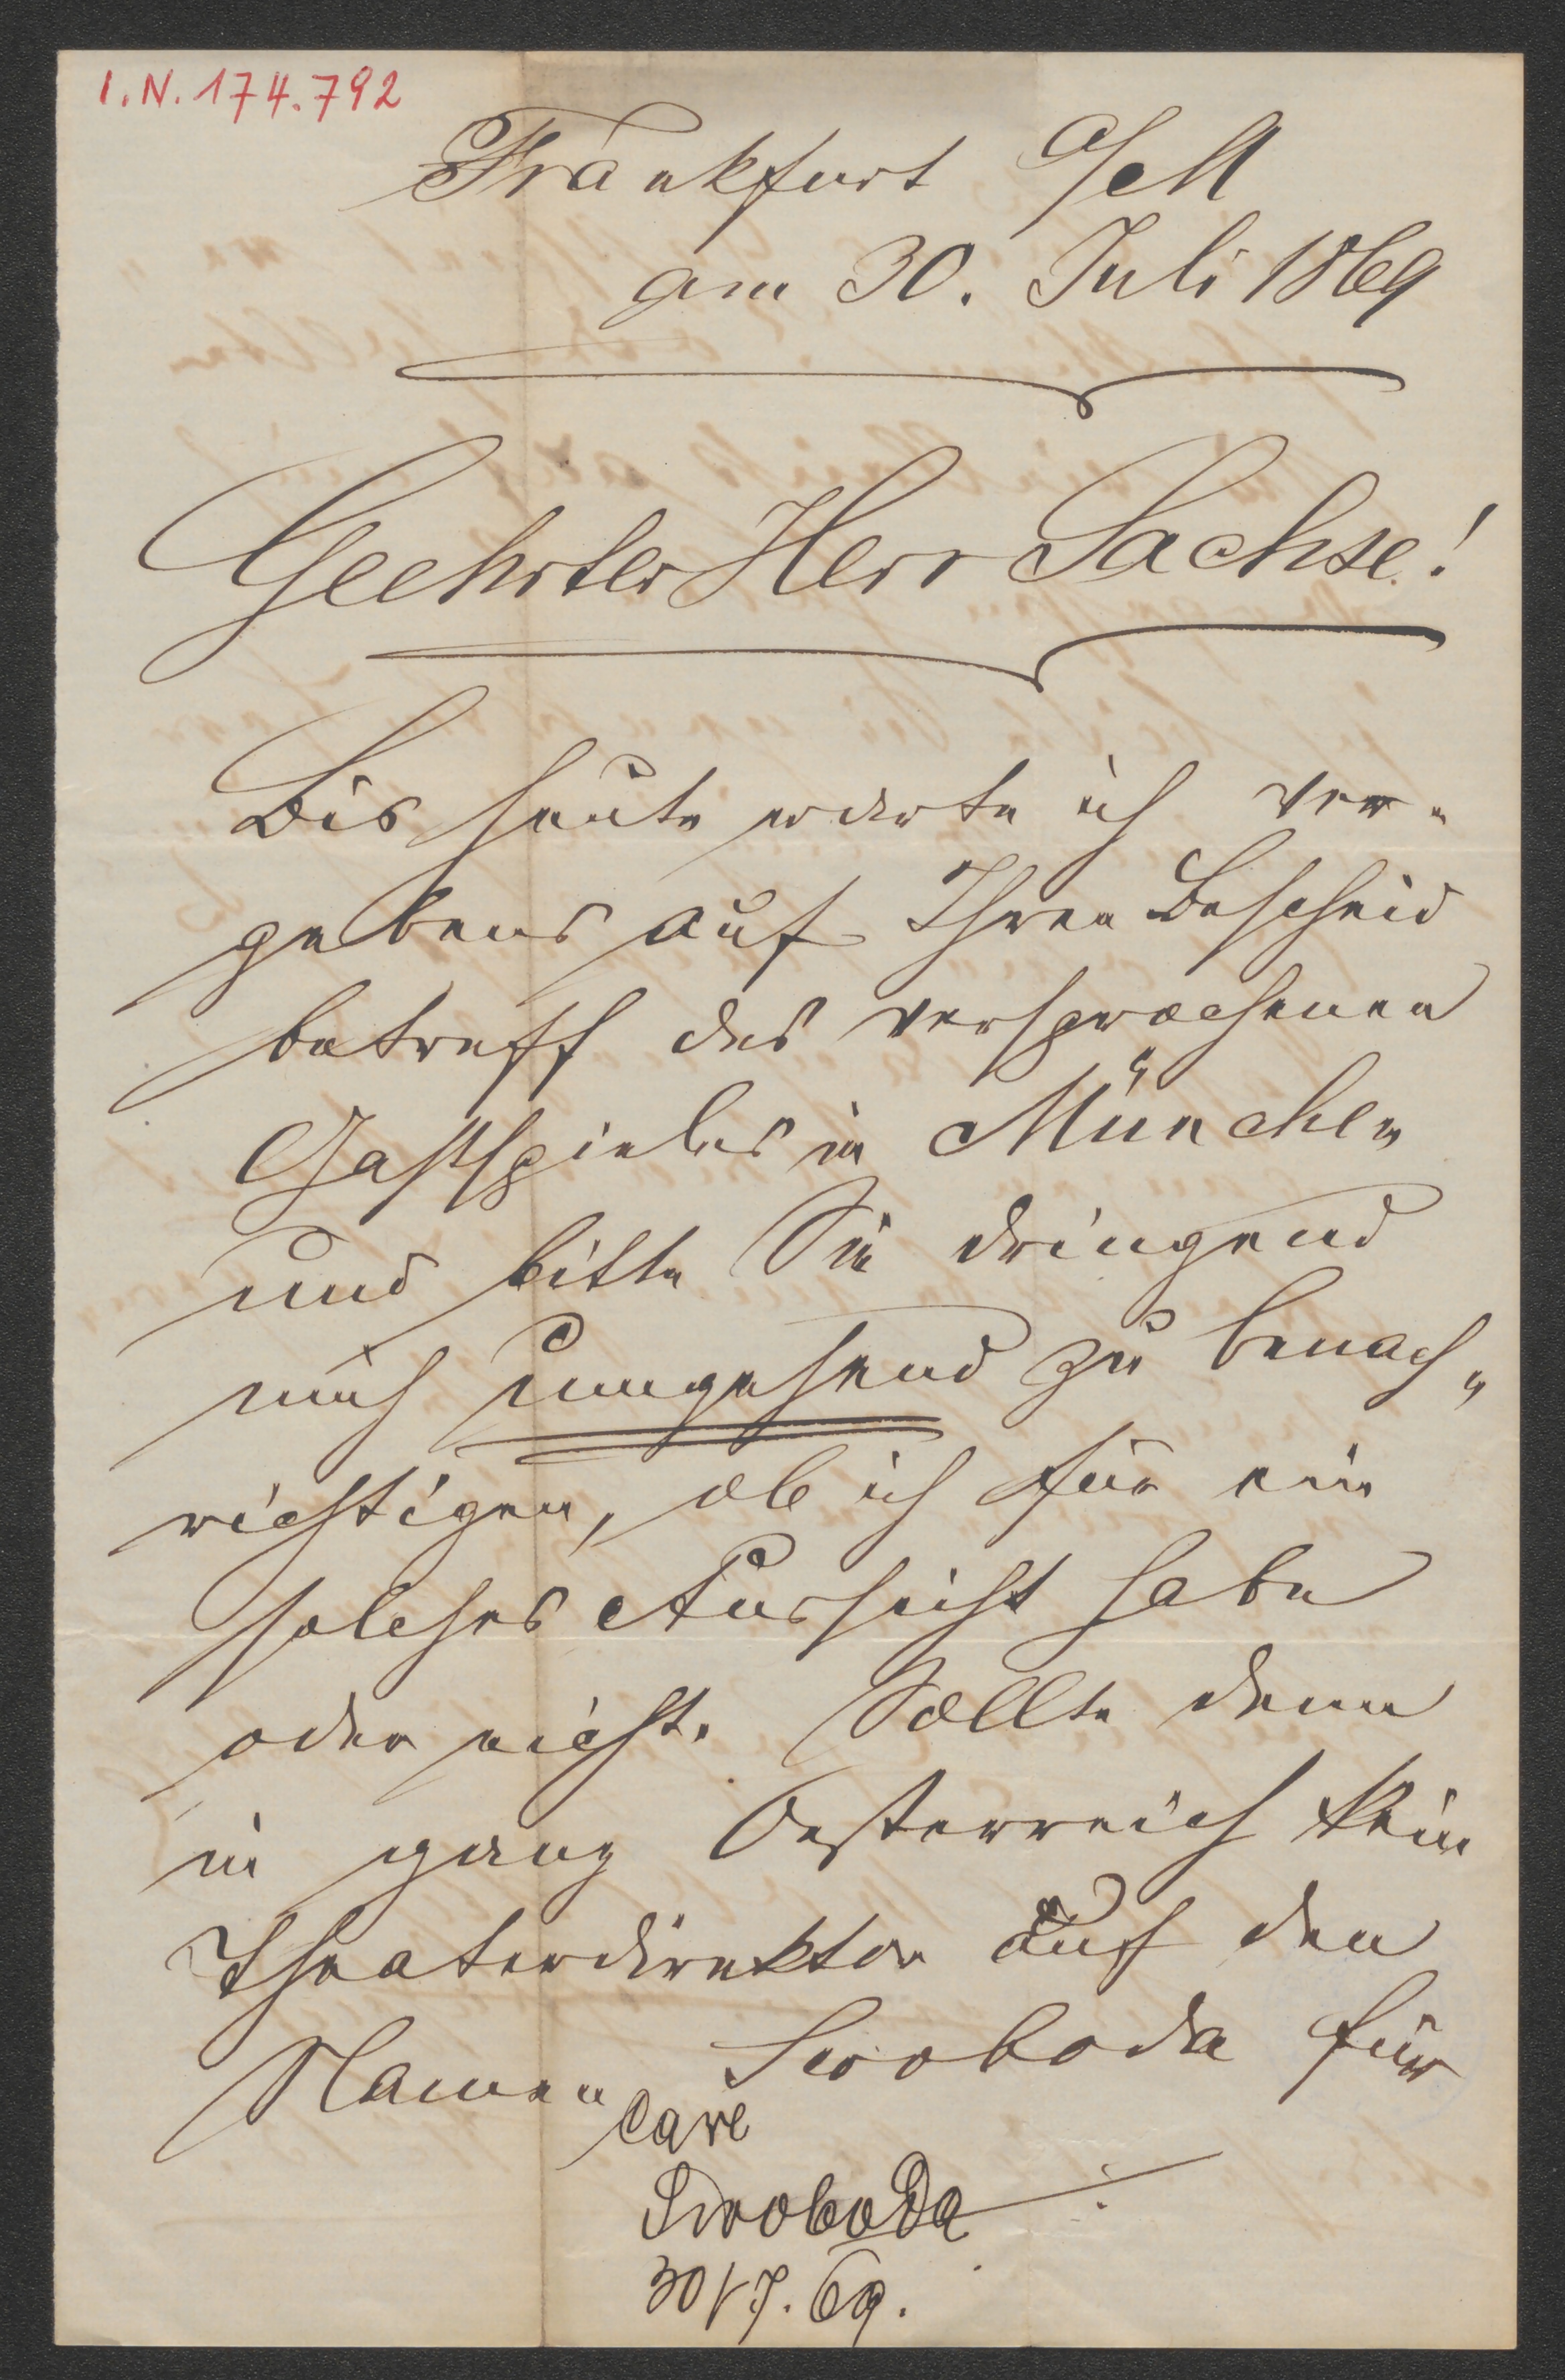 I.N. 174.792
Frankfurt a/M
am 30. Juli 1869
Geehrter Herr Sachse!
Bis heute warte ich ver-
gebens auf Ihren Bescheid
betreff des versprochenen
Gastspieles in München
und bitte Sie dringend
mich umgehend zu benach-
richtigen, ob ich für ein
solches Aussicht habe
oder nicht. Sollte denn
in ganz Oesterreich kein
Theaterdirektor auf den
Namen Swoboda für
Carl
Swoboda
30/7. 69.